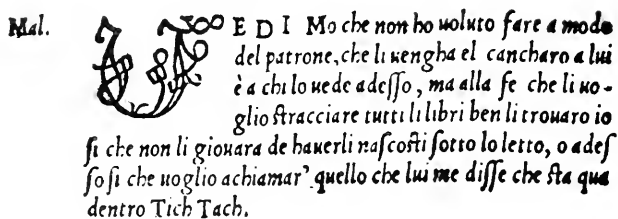 Mal. VEDI Mo che non ho uoluto fare a modo
del patrone, che li uengha el cancharo a lui
è a chi lo uede adeſſo, ma alla fe che li uo-
glio ſtracciare tutti li libri ben li trouaro io
ſi che non li giouara de hauerli naſcoſti ſotto lo letto, o adeſ
ſo ſi che uoglio achiamar' quello che lui me diſſe che ſta qua
dentro Tich Tach.